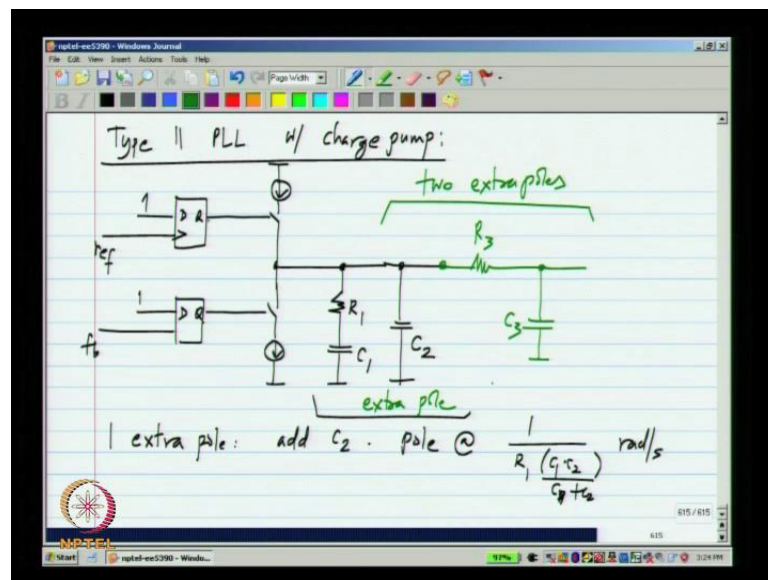 nptel-ee5390 - Windows Journal
File Edit View Insert Actions Tools Help
Page Width
B I
Type II PLL w/ charge pump:
two extra poles
1 D Q
ref
R3
1 D Q
fb
R1
C1
C2
C3
extra pole
1 extra pole: add C2. pole @ 1 / R1 (C1 C2 / C1 + C2) rad/s
615 / 615
615
NPTEL
Start
nptel-ee5390 - Windo...
97%
3:24 PM